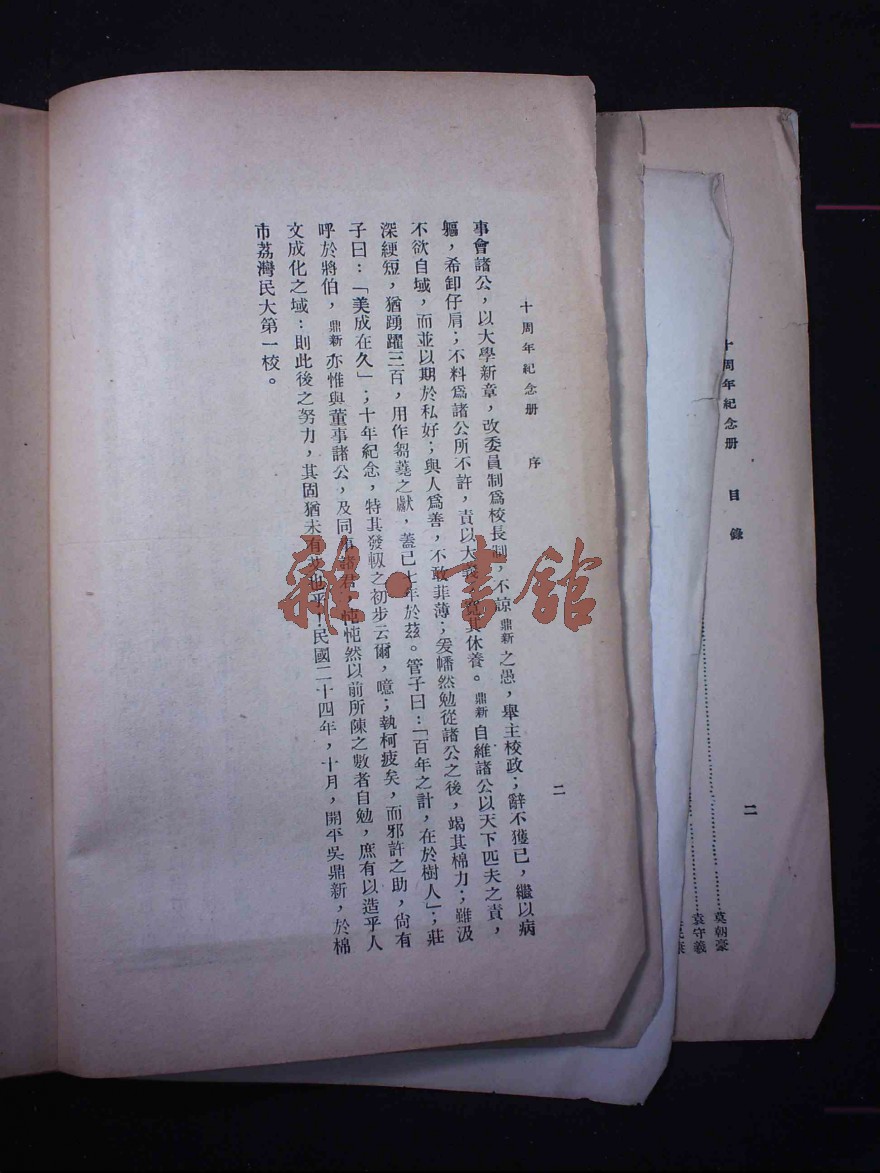 十周年紀念册　序
二
事會諸公，以大學新章，改委員制爲校長制，不諒鼎新之愚，舉主校政；辭不獲已，繼以病
軀，希卸仔肩；不料爲諸公所不許，責以大義，寬其休養。鼎新自維諸公以天下匹夫之責，
不欲自域，而並以期於私好；與人爲善，不敢菲薄；爰幡然勉從諸公之後，竭其棉力；雖汲
深綆短，猶踴躍三百，用作芻蕘之獻，蓋已七年於茲。管子曰：「百年之計，在於樹人」；莊
子曰：「美成在久」；十年紀念，特其發軔之初步云爾，噫；執柯疲矣，而邪許之助，尙有
呼於將伯，鼎新亦惟與董事諸公，及同事諸君，忳忳然以前所陳之數者自勉，庶有以造乎人
文成化之域：則此後之努力，其固猶未有艾也乎！民國二十四年，十月，開平吳鼎新，於棉
市荔灣民大第一校。
十周年紀念册　目錄
二
莫朝豪
袁守義
雜·書館